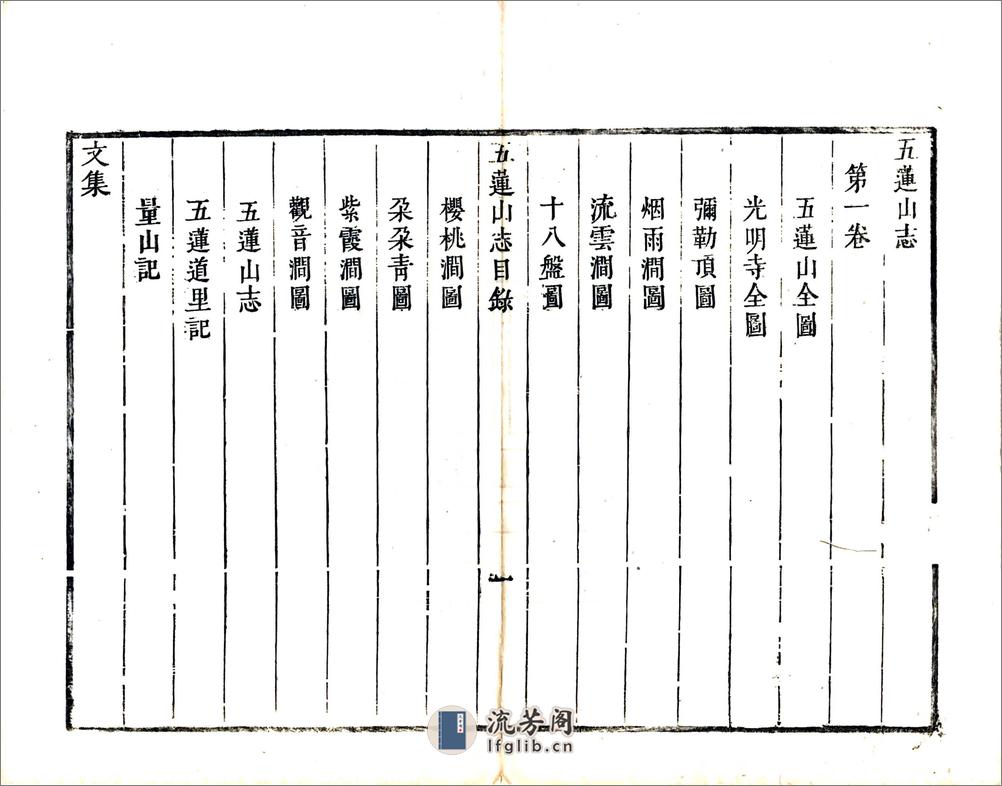 五蓮山志
第一卷
五蓮山全圖
光明寺全圖
彌勒頂圖
烟雨澗圖
流雲澗圖
十八盤圖
五蓮山志目錄
一
櫻桃澗圖
朶朶青圖
紫霞澗圖
觀音澗圖
五蓮山志
五蓮道里記
量山記
文集
流芳阁
lfglib.cn